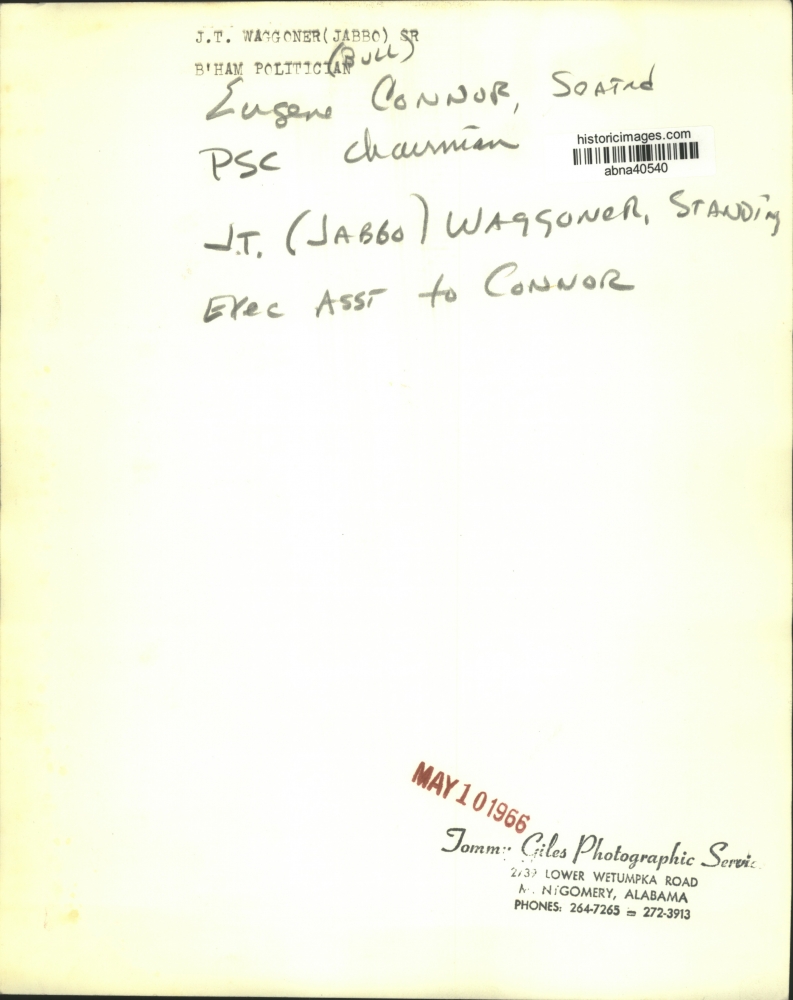 J.T. WAGGONER(JABBO) SR
B'HAM POLITICIAN
(BULL)
Eugene CONNOR, Seated
PSC chairman
historicimages.com
abna40540
J.T. (JABBO) WAGGONER, STANDing
Exec ASST to CONNOR
MAY 10 1966
Tommy Giles Photographic Servic
LOWER WETUMPKA ROAD
M NTGOMERY, ALABAMA
PHONES: 264-7265 = 272-3913